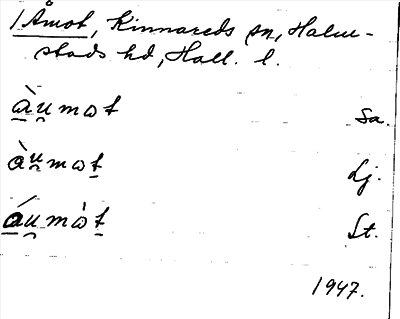 /Åmot, Kinnareds sn, Halm-
stads hd, Hall. l.
à̱u̯mɷt Sa.
àu̯mɷṯ Lj.
á̱u̯mɷ̀ṯ St.
1947.